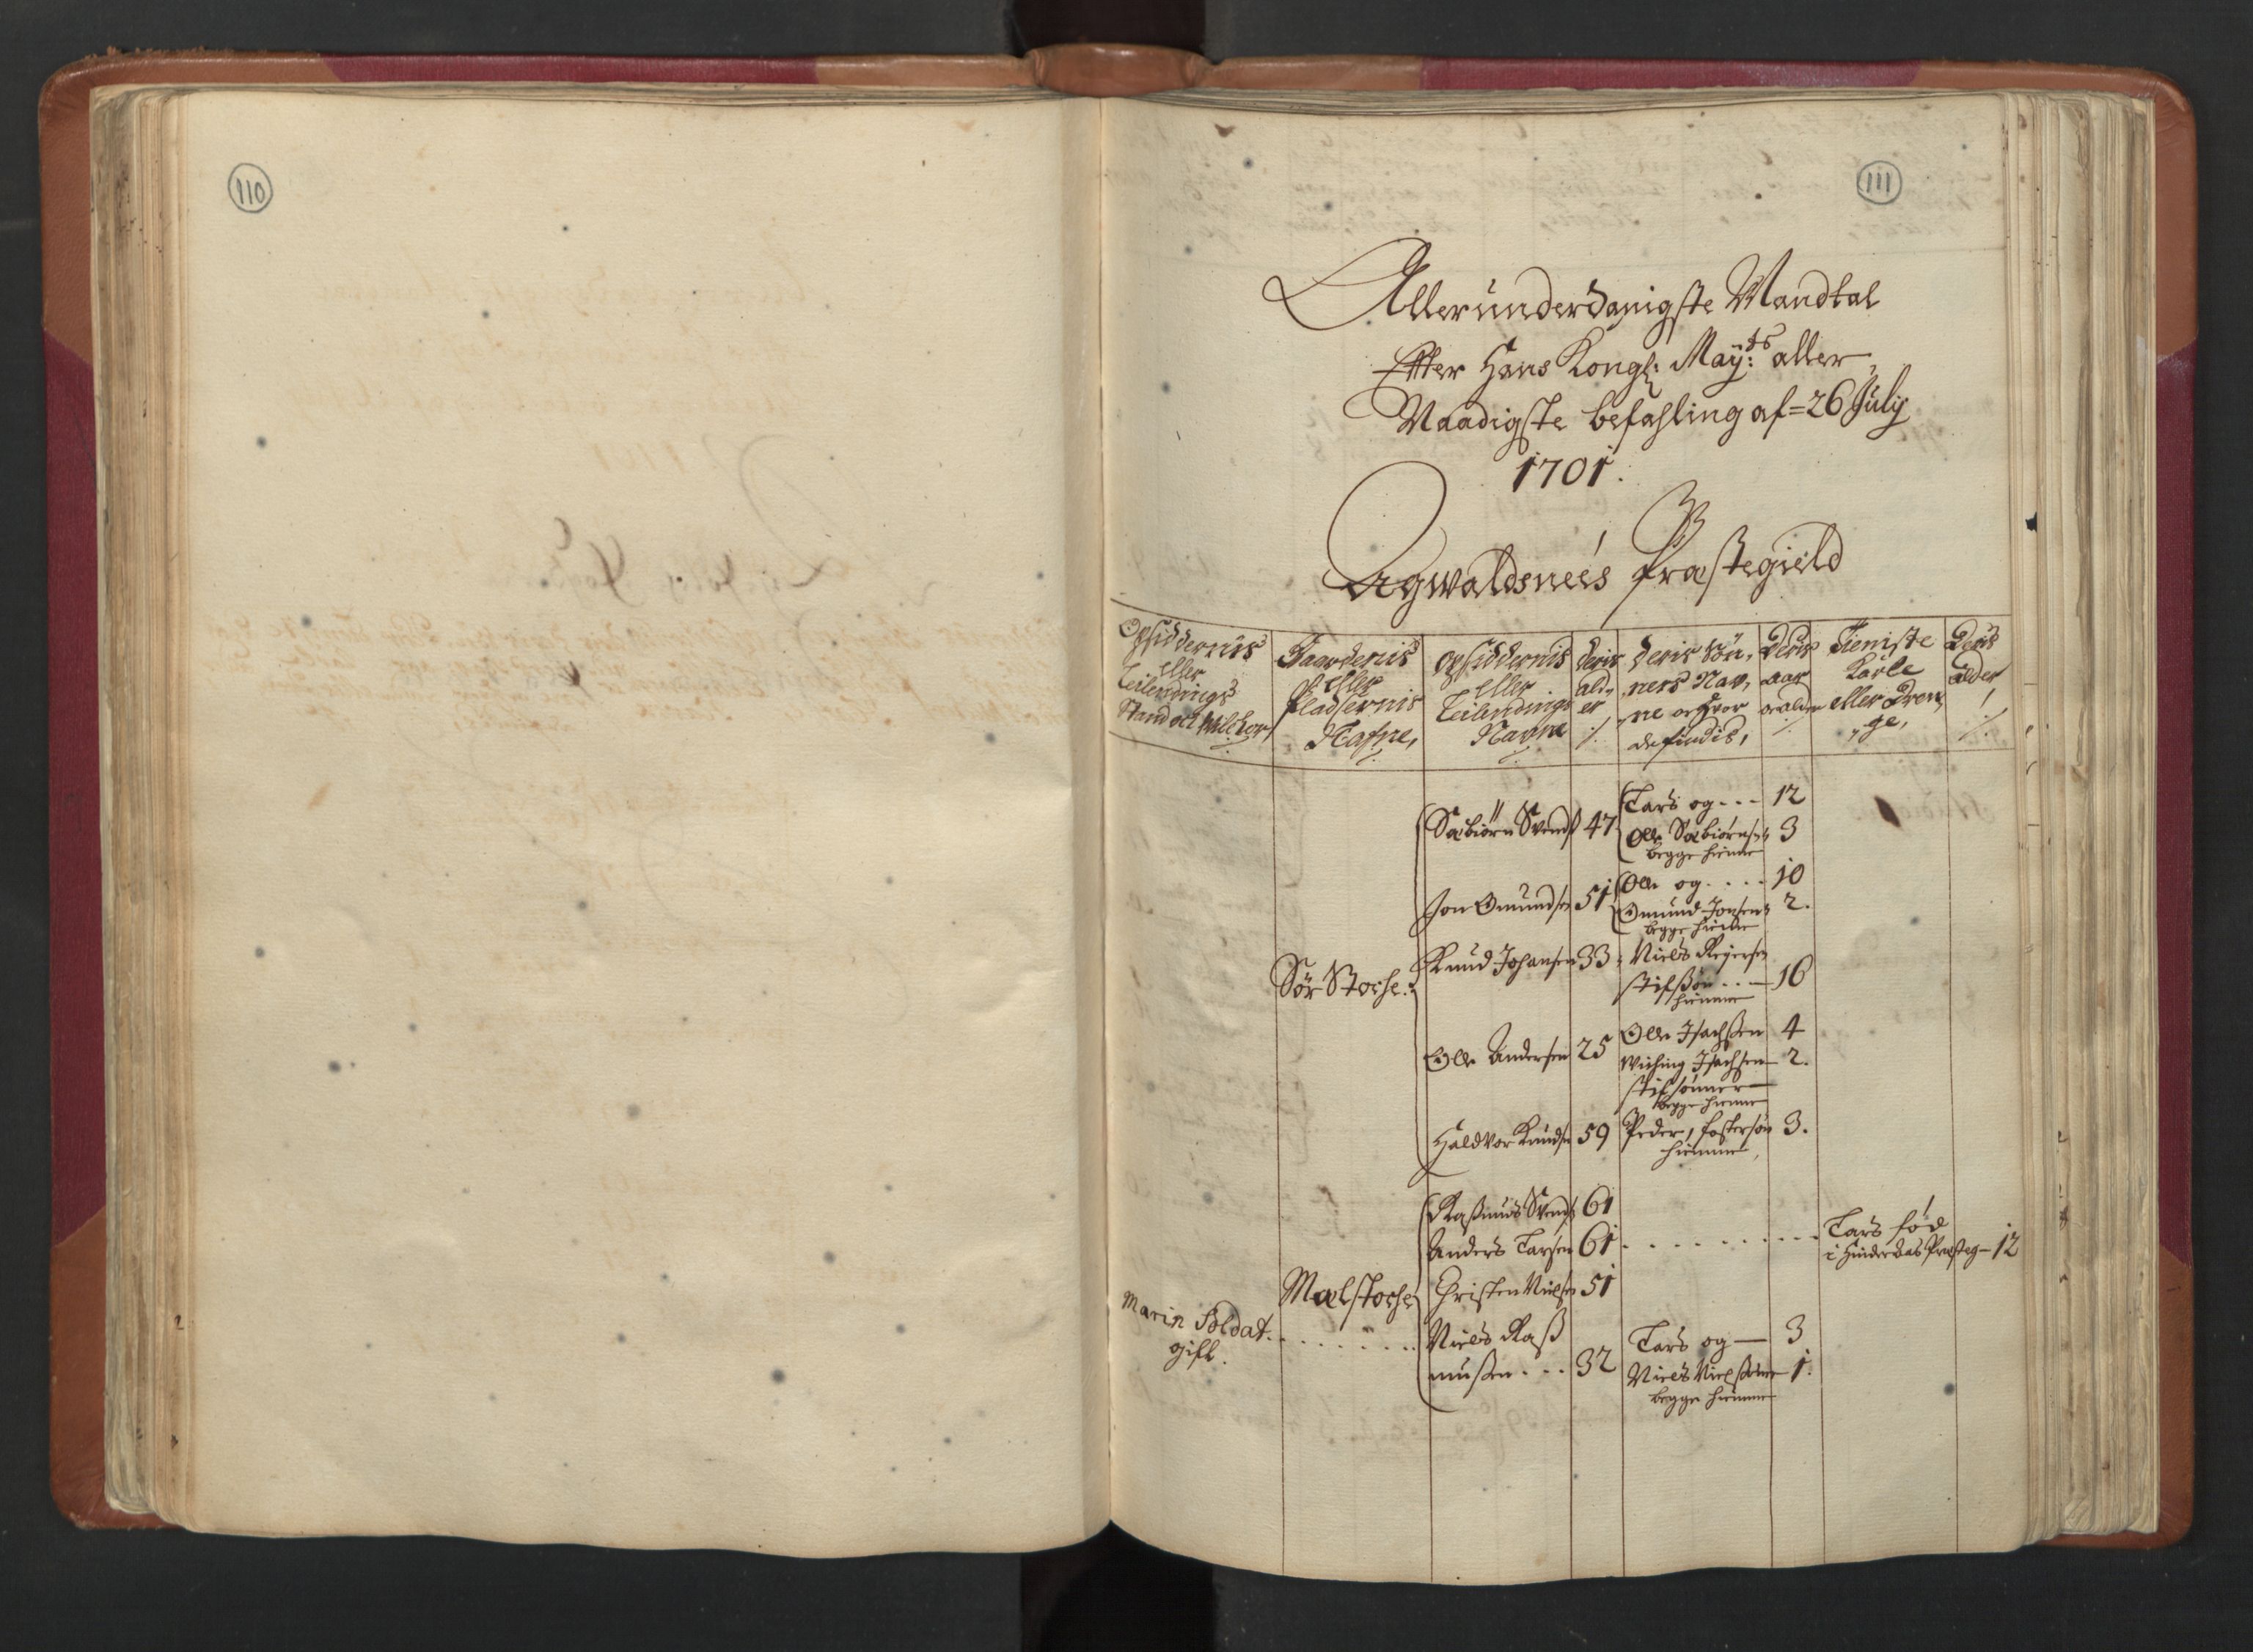 110
111
Allerunderdanigste Mandtal
Efter Hans Kongl: Maÿ:ts aller
Naadigste befahling af=26 Julij
1701.
Agwaldsneès Præstegield
Opsiddernis
eller
Leilendings
Stand och Wilckor
Gaardernis
eller
Pladsernis
Nafne,
Opsiddernis
eller
Leilendings
Nafne
deris
ald,
er
deris Søn,
ners Nav,
ne och hvor
de findis,
Deris
aar
Tieniste
Karle
eller Dren,
ge,
Deris
alder
Sør Storhe.
Sæbiørn Svends 47
Lars og - - - 12
Olle Sæbiørns: 3
begge hiemme
Jon Omunds: 51
Olle og . . . . 10
Omund Jonsen 2.
begge hiemme
Knud Johansen 33
Niels Reiersen
stifsøn . . . 16
hiemme
Olle Andersen 25
Olle Isachsen 4
Wiching Isachsen 2.
stifsønner
begge hiemme
Haldvor Knuds: 59
Peder, fostersøn 3.
hiemme
Rasmus Svends: 61
Anders Larsen 61
Lars fød
i Hinderaas Præsteg- 12
Mælstorhe
Christen Nielsen 51
Marin Soldat.
gift.
Niels Ras
mussen . . . 32
Lars og — 3
Niels Nielssønner 1.
begge hiemme